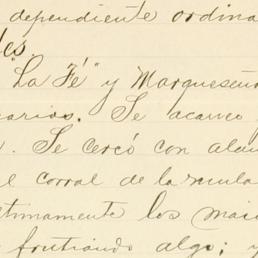 dependiente ordina
les.
"La Fé" y Marqueseña
arios. Se acarreó
. Se cercó con alam
l corral de la mula
timamente los mai
frutiando algo; y